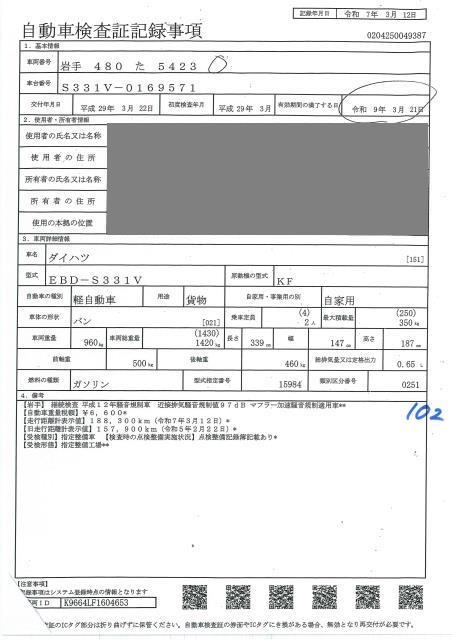 記録年月日 令和 7年 3月 12日
自動車検査証記録事項
0204250049387
1. 基本情報
車両番号 岩手 480 た 5423
車台番号 S331V-0169571
交付年月日 平成 29年 3月 22日 初度検査年月 平成 29年 3月 有効期間の満了する日 令和 9年 3月 21日
2. 使用者・所有者情報
使用者の氏名又は名称
使用者の住所
所有者の氏名又は名称
所有者の住所
使用の本拠の位置
3. 車両詳細情報
車名 ダイハツ [151]
型式 EBD-S331V 原動機の型式 KF
自動車の種別 軽自動車 用途 貨物 自家用・事業用の別 自家用
車体の形状 バン [021] 乗車定員 (4) 2人 最大積載量 (250) 350kg
車両重量 960kg 車両総重量 (1430) 1420kg 長さ 339cm 幅 147cm 高さ 187cm
前軸重 500kg 後軸重 460kg 総排気量又は定格出力 0.65L
燃料の種類 ガソリン 型式指定番号 15984 類別区分番号 0251
4. 備考
102
【岩手】 継続検査 平成12年騒音規制車 近接排気騒音規制値97dB マフラー加速騒音規制適用車**
【自動車重量税額】¥6,600*
【走行距離計表示値】188,300km (令和7年3月12日)*
【旧走行距離計表示値】157,900km (令和5年2月22日)*
【受検種別】指定整備車 【検査時の点検整備実施状況】点検整備記録簿記載あり*
【受検形態】指定整備工場**
【注意事項】
記録事項はシステム登録時点の情報となります
ID K9664LF1604653
証のICタグ部分は折り曲げずに保管ください。自動車検査証の券面やICタグにき損がある場合、無効となり再交付が必要です。